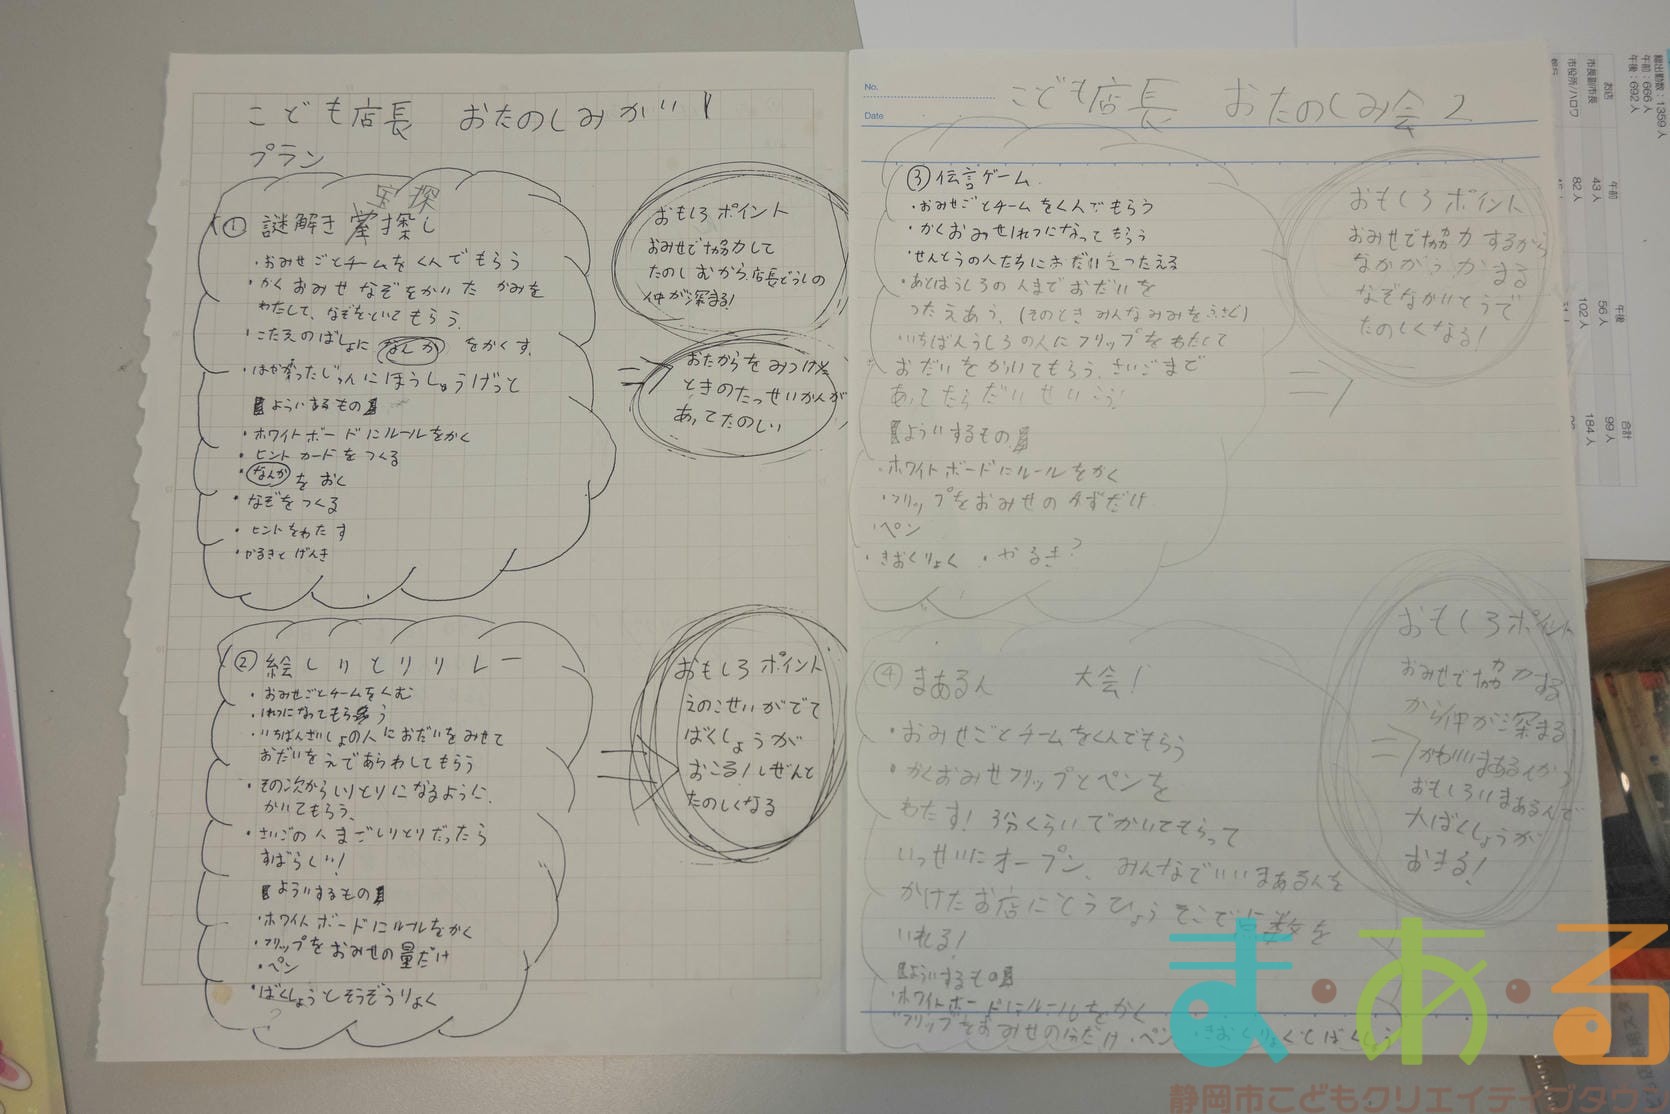 こども店長　おたのしみかい 1
プラン
① 謎解き 宝探し
・おみせごとチームをくんでもらう
・かくおみせなぞをかいたかみを
わたして、なぞをといてもらう。
・こたえのばしょに なんか をかくす。
・はやかったじゅんにほうしゅうげっと
【よういするもの】
・ホワイトボードにルールをかく
・ヒントカードをつくる
・なんか をおく
・なぞをつくる
・ヒントをわたす
・やるきとげんき
おもしろポイント
おみせで協力して
たのしむから店長どうしの
仲が深まる!
おたからをみつけた
ときのたっせいかんが
あってたのしい
② 絵しりとりリレー
・おみせごとチームをくむ
・れつになってもらう
・いちばんさいしょの人におだいをみせて
おだいをえであらわしてもらう
・その次からしりとりになるように、
かいてもらう。
・さいごの人までしりとりだったら
すばらしい!
【よういするもの】
・ホワイトボードにルールをかく
・フリップをおみせの量だけ
・ペン
・ばくしょうとそうぞうりょく
?
おもしろポイント
えのこせいがでて
ばくしょうが
おこる!しぜんと
たのしくなる
No.
Date
こども店長　おたのしみ会 2
③ 伝言ゲーム
・おみせごとチームをくんでもらう
・かくおみせ1れつになってもらう
・せんとうの人たちにおだいをつたえる
・あとはうしろの人までおだいを
つたえあう。(そのときみんなみみをふさぐ)
・いちばんうしろの人にフリップをわたして
おだいをかいてもらう。さいごまで
あってたらだいせいこう!
【よういするもの】
・ホワイトボードにルールをかく
・フリップをおみせのかずだけ
・ペン
・きおくりょく　・やるき?
おもしろポイント
おみせで協力するから
なかがふかまる
なぞなかいとうで
たのしくなる!
④ まあるん　大会!
・おみせごとチームをくんでもらう
・かくおみせフリップとペンを
わたす! 3分くらいでかいてもらって
いっせいにオープン、みんなでいいまあるんを
かけたお店にとうひょう そこで点数を
いれる!
【よういするもの】
・ホワイトボードにルールをかく
・フリップをおみせの分だけ ・ペン ・きおくりょくとばくしょう
おもしろポイント
おみせで協力する
から仲が深まる
かわいいまあるんから
おもしろいまあるんで
大ばくしょうが
おきる!
総出勤数：1359人
午前：666人
午後：692人
お店
市長副市長
市役所/ハロワ
午前
43人
82人
午後
56人
102人
合計
99人
184人
ま・あ・る
静岡市こどもクリエイティブタウン